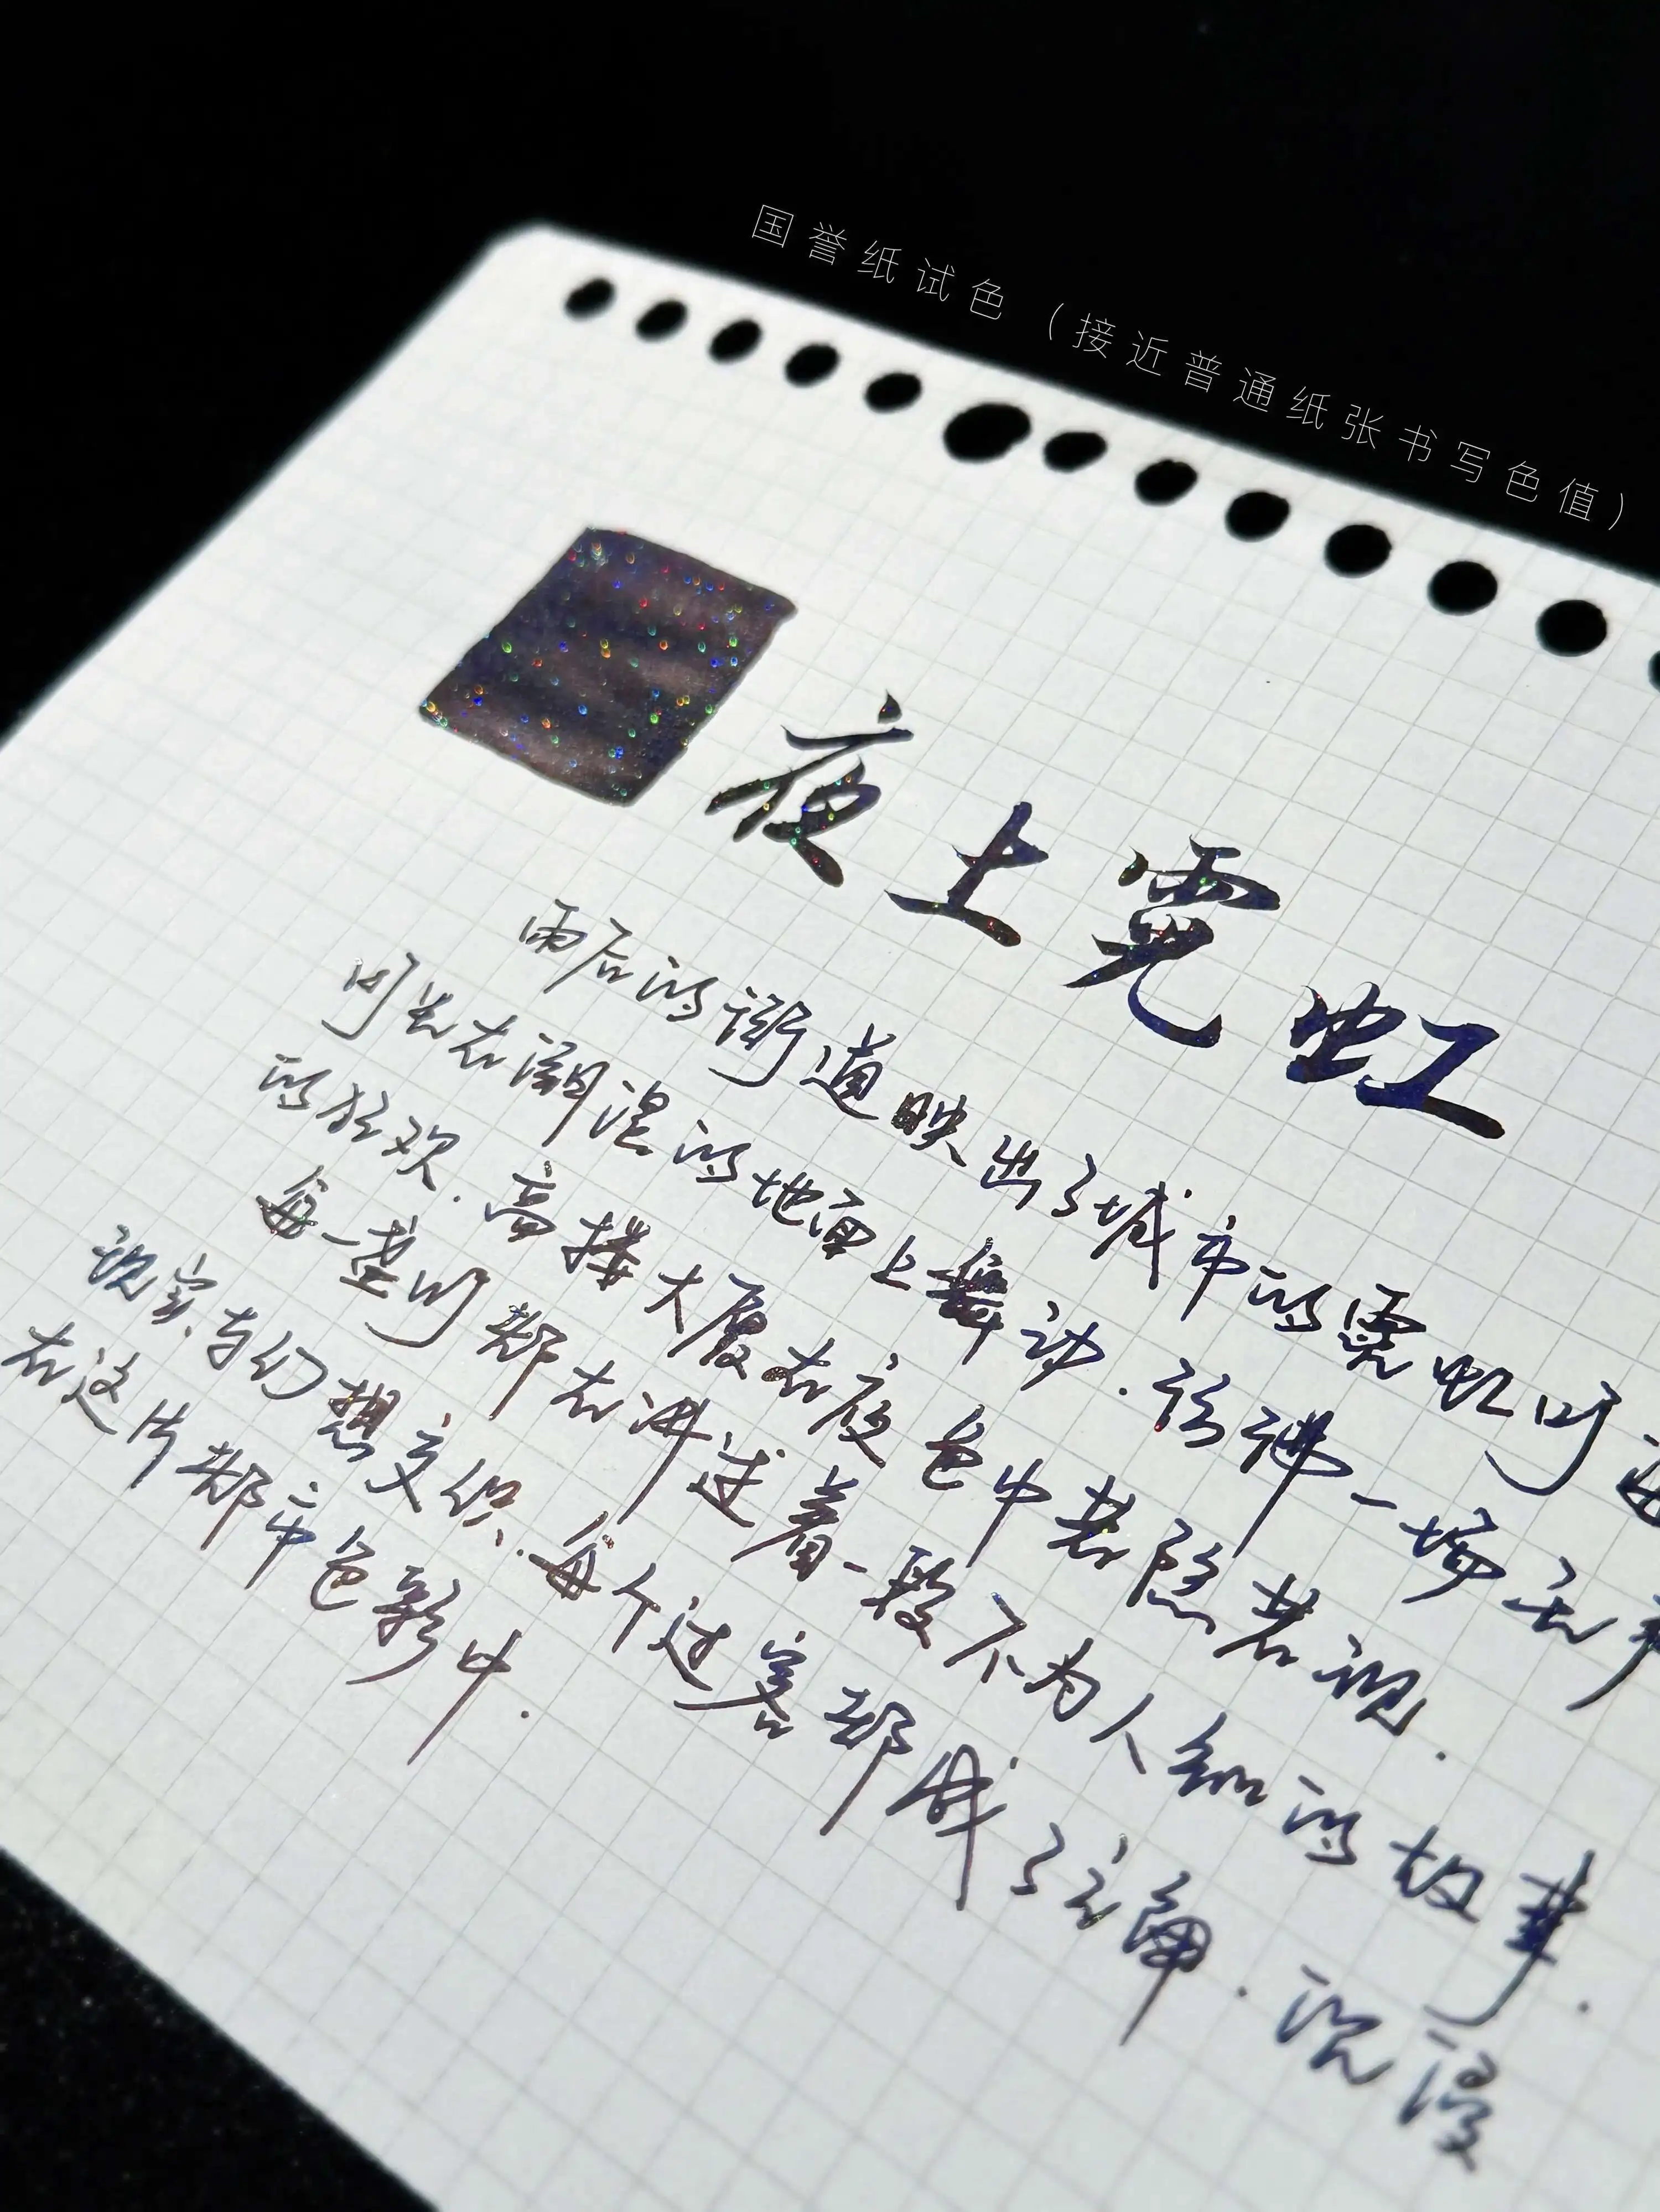 国誉纸试色（接近普通纸张书写色值）
夜上霓虹
雨后的街道映出了城市的霓虹灯
灯光在潮湿的地面上舞动.仿佛一场无声
的狂欢.高楼大厦在夜色中若隐若现.
每一盏灯都在讲述着一段不为人知的故事.
现实与幻想交织.每个过客都成了主角.沉浸
在这片都市色彩中.